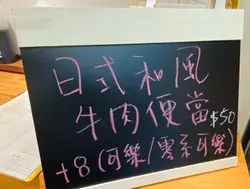 日式和風
牛肉便當$50
+8(可樂/零系可樂)